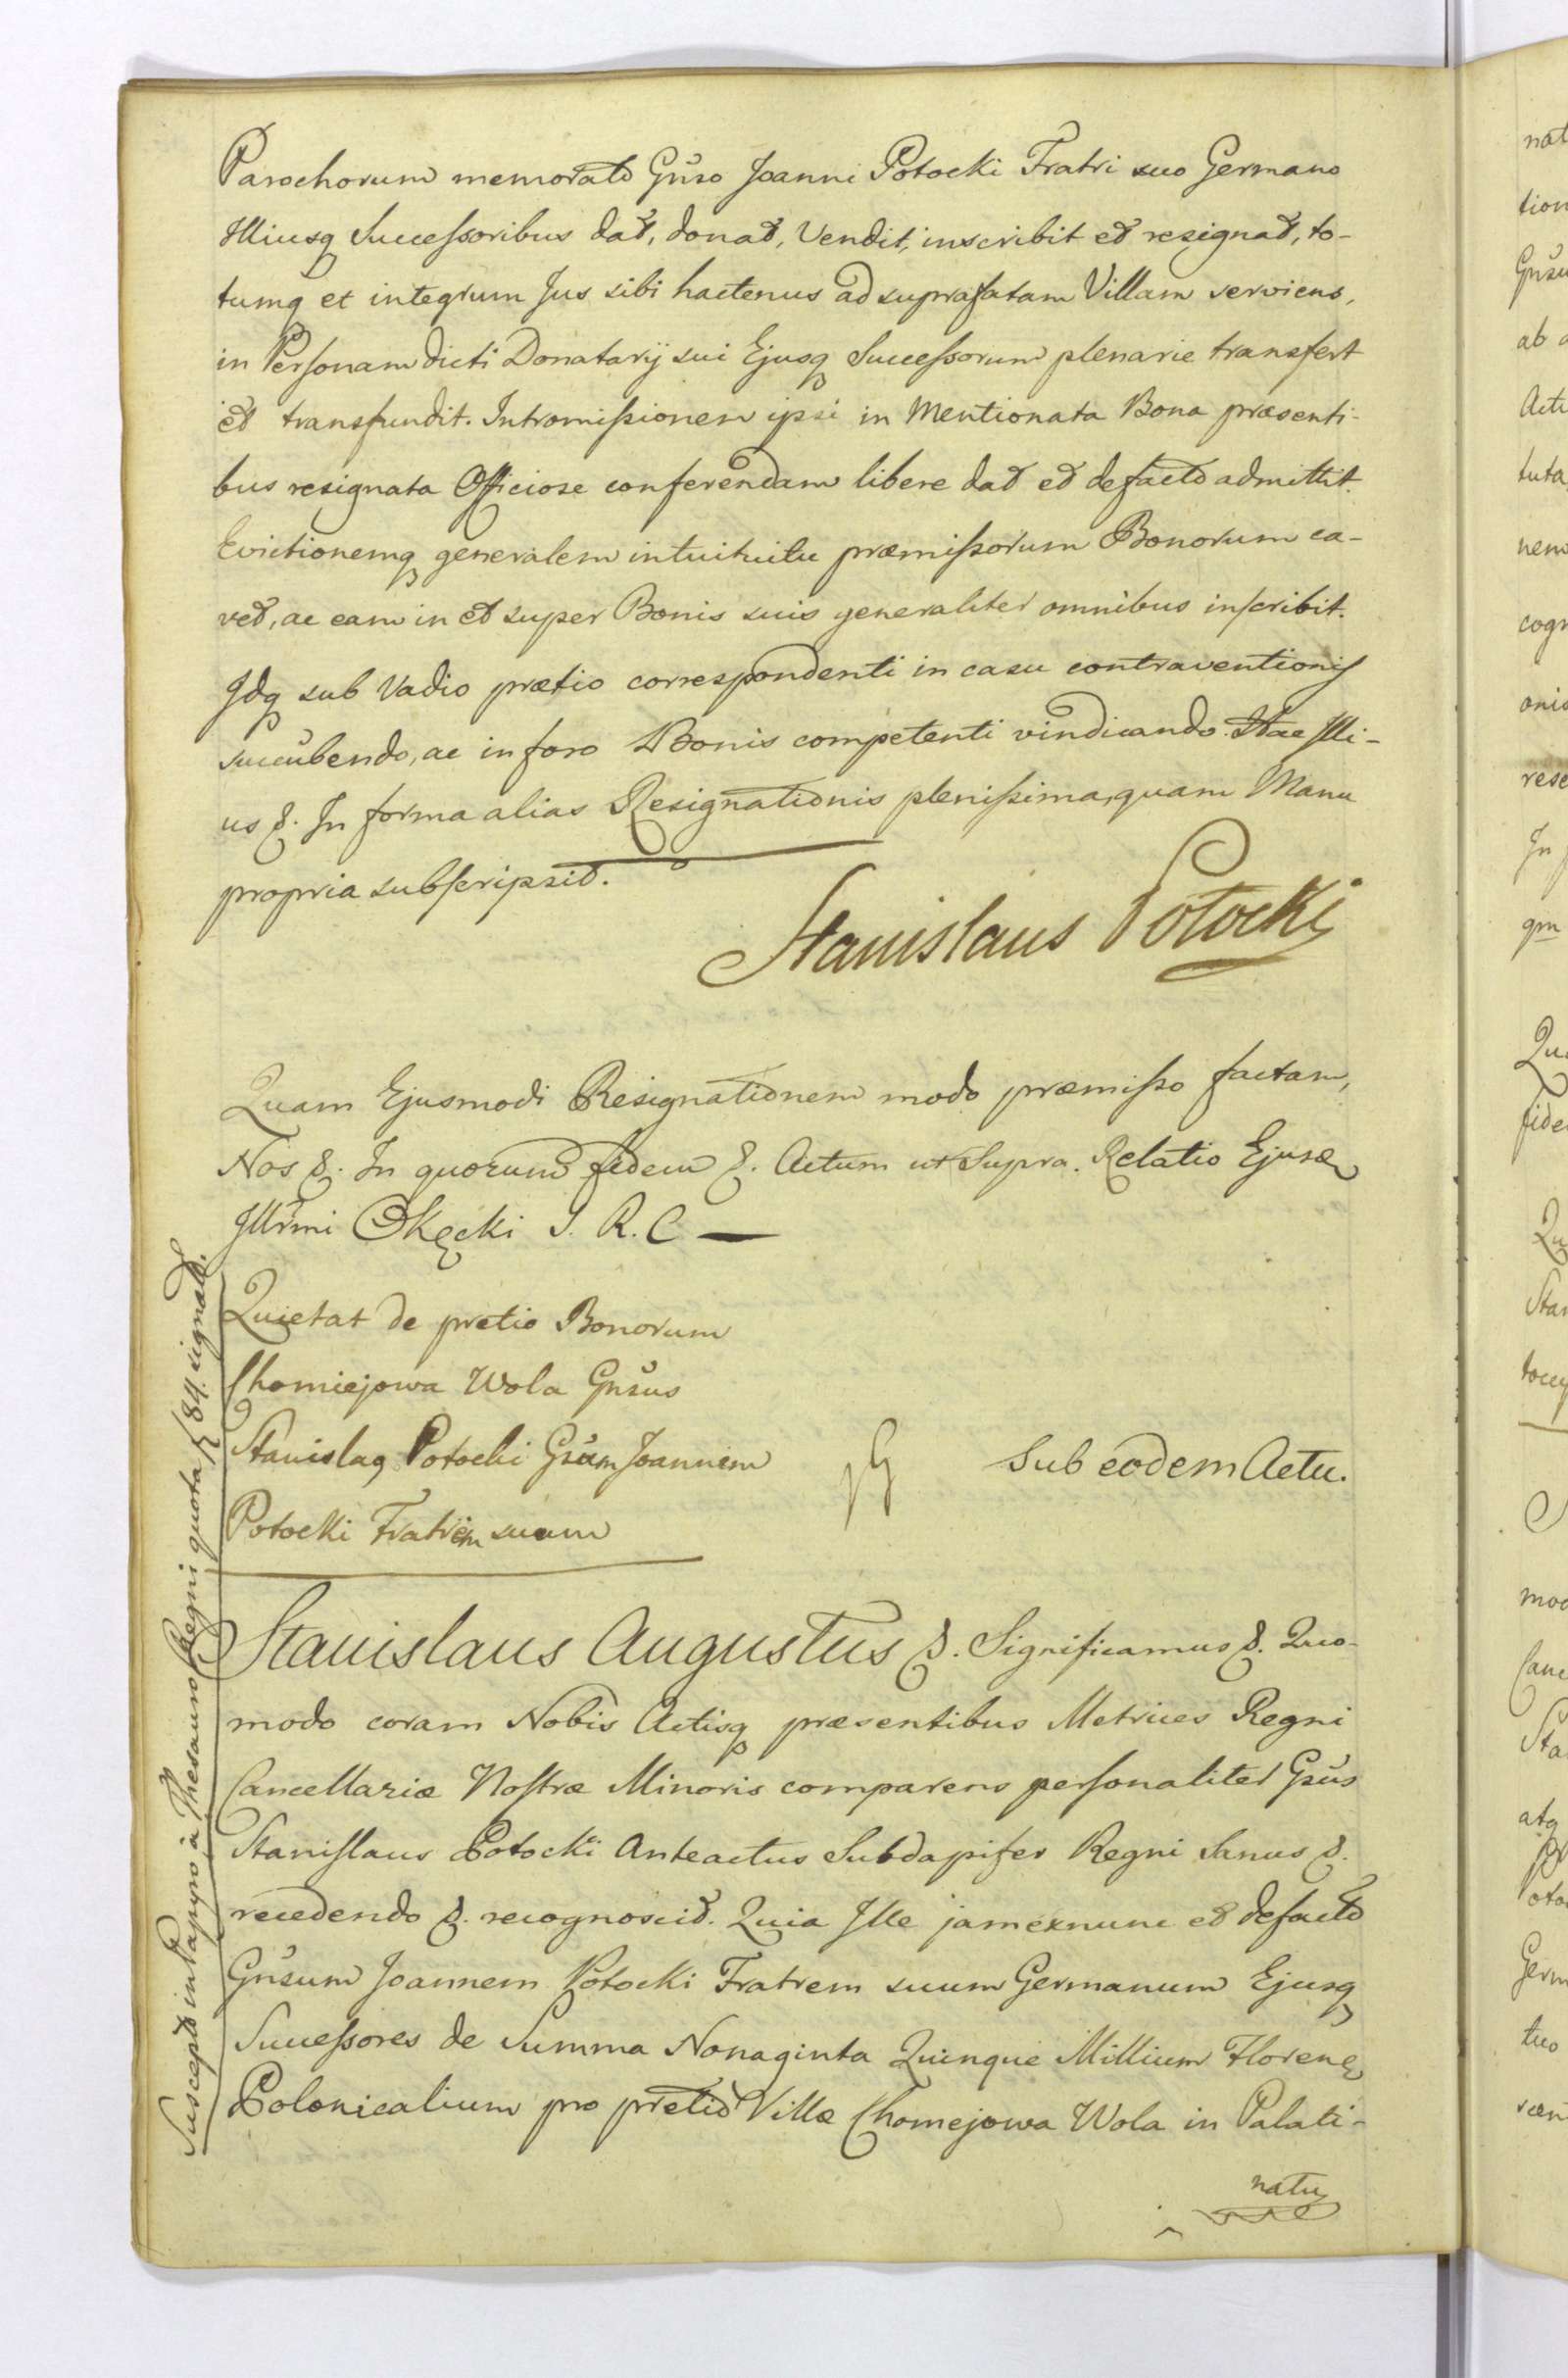 Parochorum memorato Gnso Joanni Potocki Fratri suo Germano
Illiusq Successoribus dat, donat, Vendit, inscribit et resignat, to-
tumq et integrum Jus sibi hactenus ad suprafatam Villam serviens,
in Personam dicti Donatarij sui Ejusq Successorum plenarie transfert
et transfundit. Intromissionem ipsi in Mentionata Bona præsenti-
bus resignata Officiose conferendam libere dat et defacto admittit.
Evictionemq generalem intuituitu præmissorum Bonorum ca-
vet, ac eam in et super Bonis suis generaliter omnibus inscribit.
Idq sub Vadio prætio correspondenti in casu contraventionis
succubendo, ac in foro Bonis competenti vindicando. Hac Illi-
us &. In forma alias Resignationis plenissima, quam Manu
propria subscripsit.
Stanislaus Potocki
Quam Ejusmodi Resignationem modo præmisso factam,
Nos &. In quorum fidem &. Actum ut Supra. Relatio Ejusde
Illrmi Okęcki S. R. C —
Quietat de pretio Bonorum
Chomiejowa Wola Gnsus
Stanislaq Potocki Gsum Joannem
Potocki Fratrem suum
Sub eodem Actu.
Susceptū in Papyro à Thesauro Regni quota 84. signatā.
Stanislaus Augustus &. Significamus &. Quo-
modo coram Nobis Actisq præsentibus Metrices Regni
Cancellariæ Nostræ Minoris comparens personaliter Gsus
Stanislaus Potocki Anteactus Subdapifer Regni Sanus &.
recedendo &. recognoscit. Quia Ille jamexnunc et defacto
Gnsum Joannem Potocki Fratrem suum Germanum Ejusq
Successores de Summa Nonaginta Quinque Millium Floren
Polonicalium pro pretio Villæ Chomejowa Wola in Palati-
natu